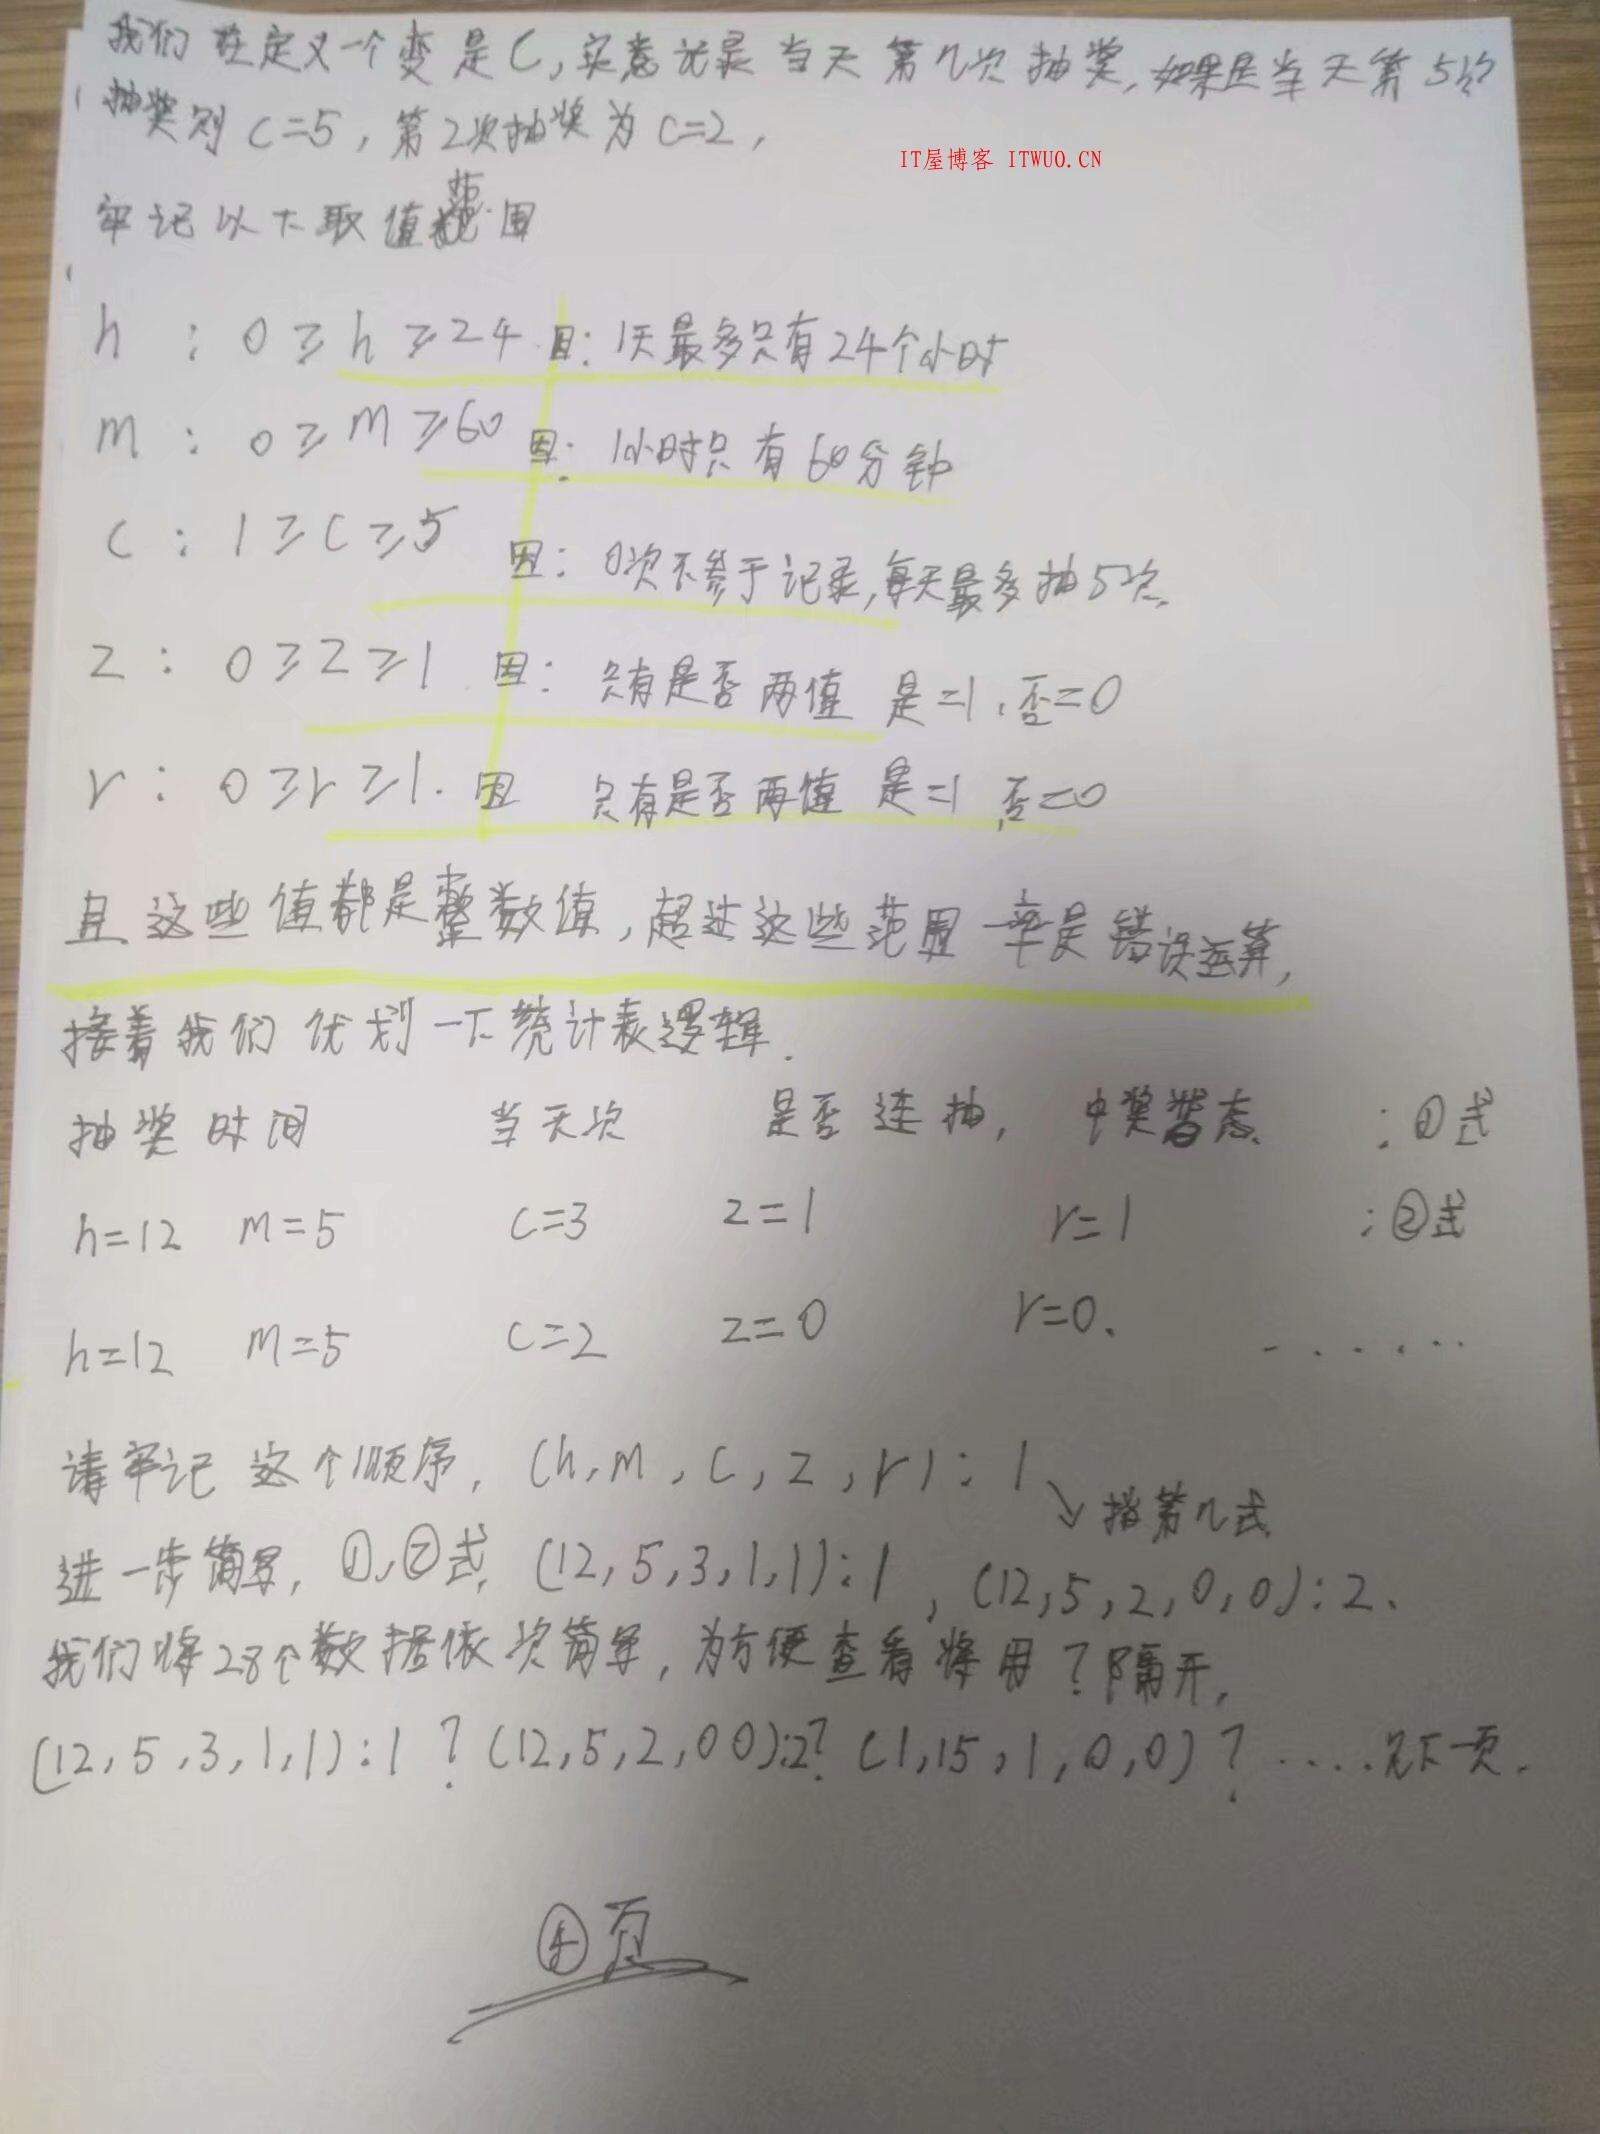 我们在定义一个变是C,实意记录当天第几次抽奖,如果是当天第5次
抽奖则C=5,第2次抽奖为C=2,
IT屋博客 ITWUO.CN
牢记以下取值范围
h : 0≥h≥24 因: 1天最多只有24个小时
m : 0≥m≥60 因: 1小时只有60分钟
c : 1≥c≥5 因: 0次不参于记录,每天最多抽5次.
z : 0≥z≥1 因: 只有是否两值 是=1,否=0
r : 0≥r≥1. 因 只有是否两值 是=1,否=0
且这些值都是整数值,超过这些范围一率是错误运算,
接着我们优划一下统计表逻辑.
抽奖时间 当天次 是否连抽, 中奖状态 :①式
h=12 m=5 c=3 z=1 r=1 :②式
h=12 m=5 c=2 z=0 r=0. ......
请牢记这个顺序, (h,m,c,z,r):1
↘指第几式
进一步简写,①,②式,(12,5,3,1,1):1,(12,5,2,0,0):2.
我们将28个数据依次简写,为方便查看将用?隔开,
(12,5,3,1,1):1?(12,5,2,00):2?(1,15,1,0,0)?....见下一页.
④页